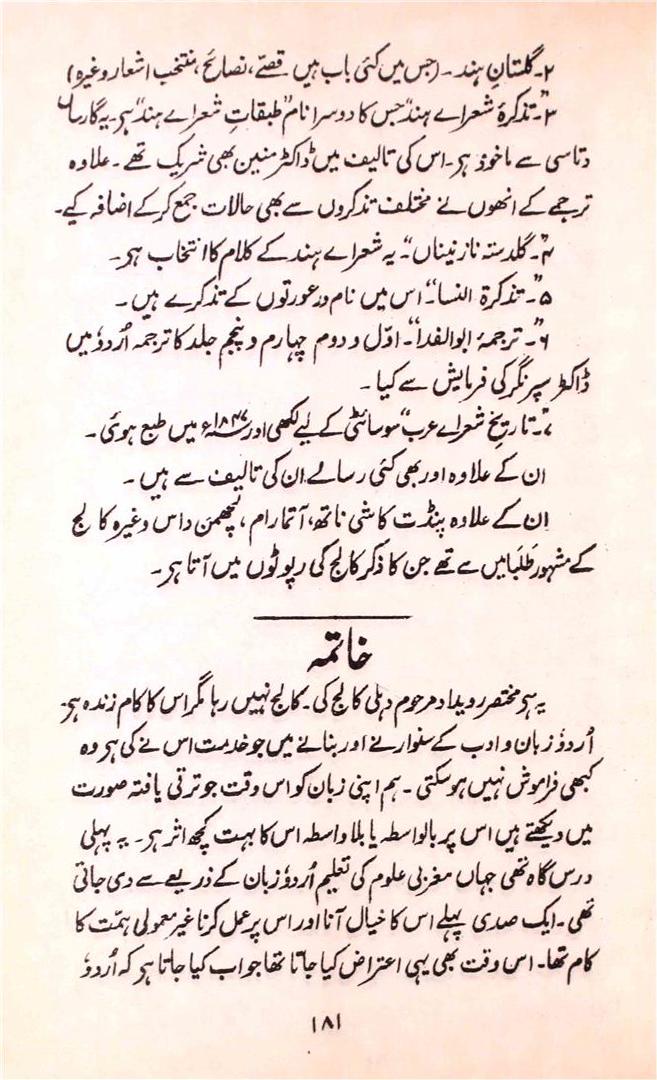 ۲۔ گلستانِ ہند۔ (جس میں کئی باب ہیں قصّے، نصائح، منتخب اشعار وغیرہ)
۳۔ "تذکرۂ شعراے ہند" جس کا دوسرا نام "طبقاتِ شعراے ہند" ہر۔ یہ گارساں
دتاسی سے ماخوذ ہر۔ اس کی تالیف میں ڈاکٹر منین بھی شریک تھے۔ علاوہ
ترجمے کے انھوں نے مختلف تذکروں سے بھی حالات جمع کرکے اضافہ کیے۔
۴۔ "گلدستہ نازنیناں"۔ یہ شعراے ہند کے کلام کا انتخاب ہر۔
۵۔ "تذکرۃ النسا"۔ اس میں نام ور عورتوں کے تذکرے ہیں۔
۶۔ "ترجمۂ ابوالفدا"۔ اوّل و دوم چہارم و پنجم جلد کا ترجمہ اُردوٗ میں
ڈاکٹر سپرنگر کی فرمایش سے کیا۔
۷۔ "تاریخ شعراے عرب" سوسائٹی کے لیے لکھی اور ۱۸۴۷ء میں طبع ہوئی۔
ان کے علاوہ اور بھی کئی رسالے ان کی تالیف سے ہیں۔
اِن کے علاوہ پنڈت کاشی ناتھ، آتمارام، لچھمن داس وغیرہ کالج
کے مشہور طَلَبا میں سے تھے جن کا ذکر کالج کی رپوٹوں میں آتا ہر۔
خاتمہ
یہ ہر مختصر رویداد مرحوم دہلی کالج کی۔ کالج نہیں رہا مگر اس کا کام زندہ ہر۔
اُردوٗ زبان و ادب کے سنوارنے اور بنانے میں جو خدمت اس نے کی ہر وہ
کبھی فراموش نہیں ہوسکتی۔ ہم اپنی زبان کو اس وقت جو ترقی یافتہ صورت
میں دیکھتے ہیں اس پر بالواسطہ یا بلاواسطہ اس کا بہت کچھ اثر ہر۔ یہ پہلی
درس گاہ تھی جہاں مغربی علوم کی تعلیم اُردوٗ زبان کے ذریعے سے دی جاتی
تھی۔ ایک صدی پہلے اس کا خیال آنا اور اس پر عمل کرنا غیر معمولی ہمّت کا
کام تھا۔ اس وقت بھی یہی اعتراض کیا جاتا تھا جو اب کیا جاتا ہر کہ اُردوٗ
۱۸۱